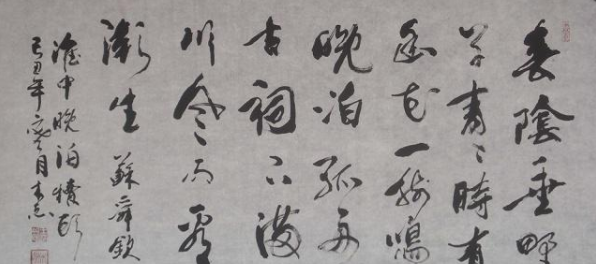 春陰垂野
草青々時有
幽花一樹鳴
晚泊孤舟
古祠下滿
川風雨看
潮生 蘇舜欽
淮中晚泊犢頭
己丑年月